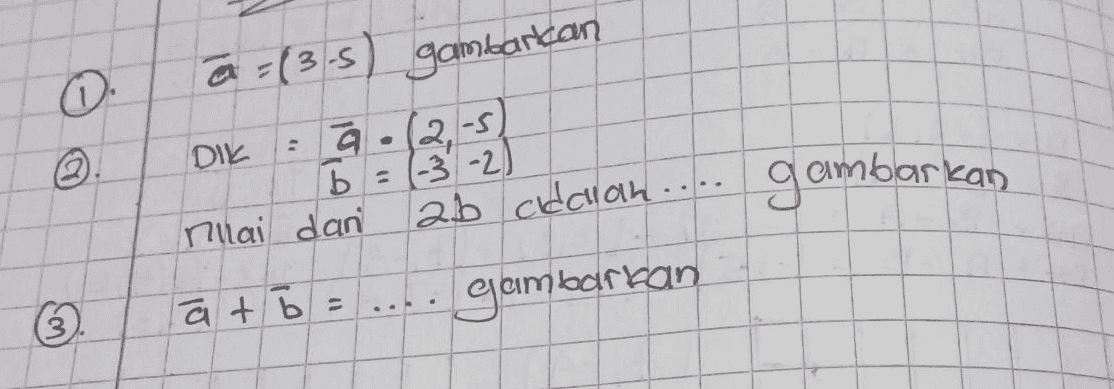 ①. a̅ = (3 -5) gambarkan
②. DIK : a̅ = (2, -5)
b̅ = (-3 -2)
nilai dari 2b adalah .... gambarkan
③. a̅ + b̅ = .... gambarkan